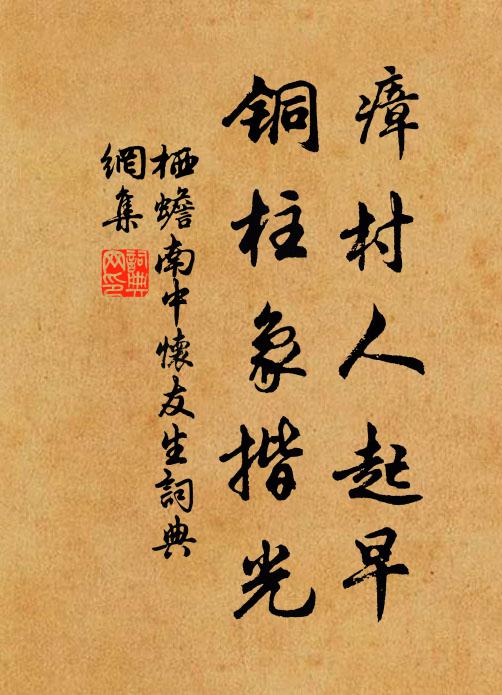 瘴村人起早
銅柱象揩光
栖蟾南中懷友生詞典
網集
詞典
网印